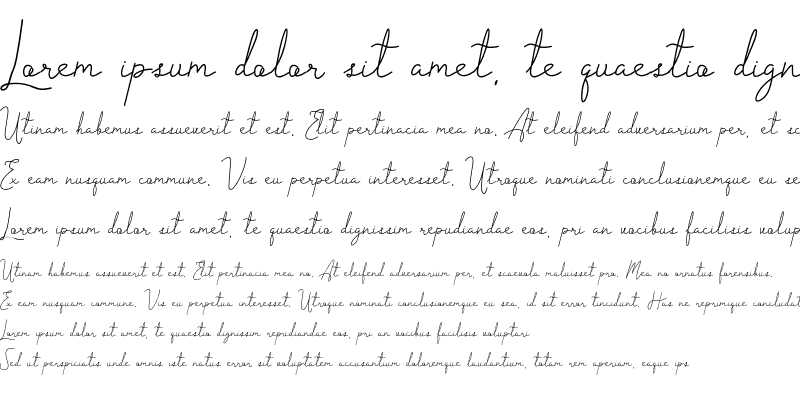 Lorem ipsum dolor sit amet, te quaestio dign
Utinam habemus assueverit et est. Elit pertinacia mea no. At eleifend adversarium per, et sc
Ex eam nusquam commune. Vis eu perpetua interesset. Utroque nominati conclusionemque eu se
Lorem ipsum dolor sit amet, te quaestio dignissim repudiandae eos, pri an vocibus facilisis volup
Utinam habemus assueverit et est. Elit pertinacia mea no. At eleifend adversarium per, et scaevola maluisset pro. Mea no ornatus forensibus.
Ex eam nusquam commune. Vis eu perpetua interesset. Utroque nominati conclusionemque eu sea, id sit error tincidunt. Has ne reprimique concludat
Lorem ipsum dolor sit amet, te quaestio dignissim repudiandae eos, pri an vocibus facilisis voluptari
Sed ut perspiciatis unde omnis iste natus error sit voluptatem accusantium doloremque laudantium, totam rem aperiam, eaque ips